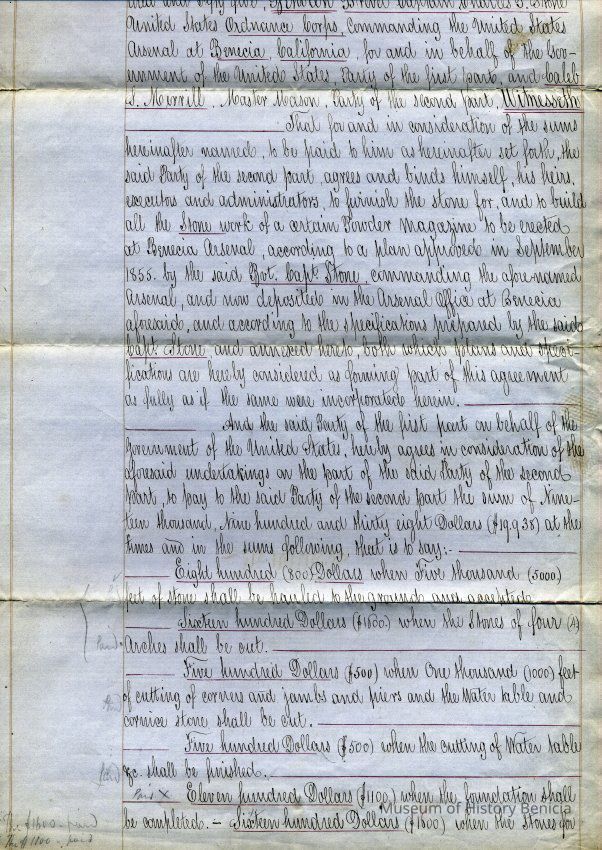 and fifty five, Between Brevet Captain Charles P. Stone
United States Ordnance Corps, commanding the United States
Arsenal at Benecia, California, for and in behalf of the Gov-
ernment of the United States Party of the first part, and Caleb
S. Merrill, Master Mason, Party of the second part, Witnesseth
That for and in consideration of the sums
hereinafter named, to be paid to him as hereinafter set forth, the
said Party of the second part, agrees and binds himself, his heirs,
executors and administrators, to furnish the stone for, and to build
all the Stone work of a certain Powder magazine to be erected
at Benecia Arsenal, according to a plan approved in September
1855. by the said Bvt. Capt. Stone, commanding the afore-named
Arsenal, and now deposited in the Arsenal Office at Benecia
aforesaid, and according to the specifications prepared by the said
Capt. Stone and annexed hereto, both which plans and speci-
fications are hereby considered as forming part of this agreement
as fully as if the same were incorporated herein.
And the said Party of the first part on behalf of the
Government of the United States, hereby agrees in consideration of the
aforesaid undertakings on the part of the said Party of the second
part, to pay to the said Party of the second part the sum of Nine-
teen thousand, Nine hundred and thirty eight Dollars ($19.938) at the
times and in the sums following, that is to say:-
Eight hundred (800) Dollars when Five thousand (5000)
feet of stone shall be hauled to the ground and accepted.
Sixteen hundred Dollars ($1600) when the Stones of four (4)
Paid. Arches shall be cut.
Five hundred Dollars ($500) when One thousand (1000) feet
Paid of cutting of corners and jambs and piers and the Water table and
cornice stone shall be cut.
Five hundred Dollars ($500) when the cutting of Water table
Paid &c. shall be finished.
Paid X Eleven hundred Dollars ($1100) when the foundation shall
be completed. - Sixteen hundred Dollars ($1600) when the Stones for
The $1600 - paid
The $1100 - paid
Museum of History Benicia